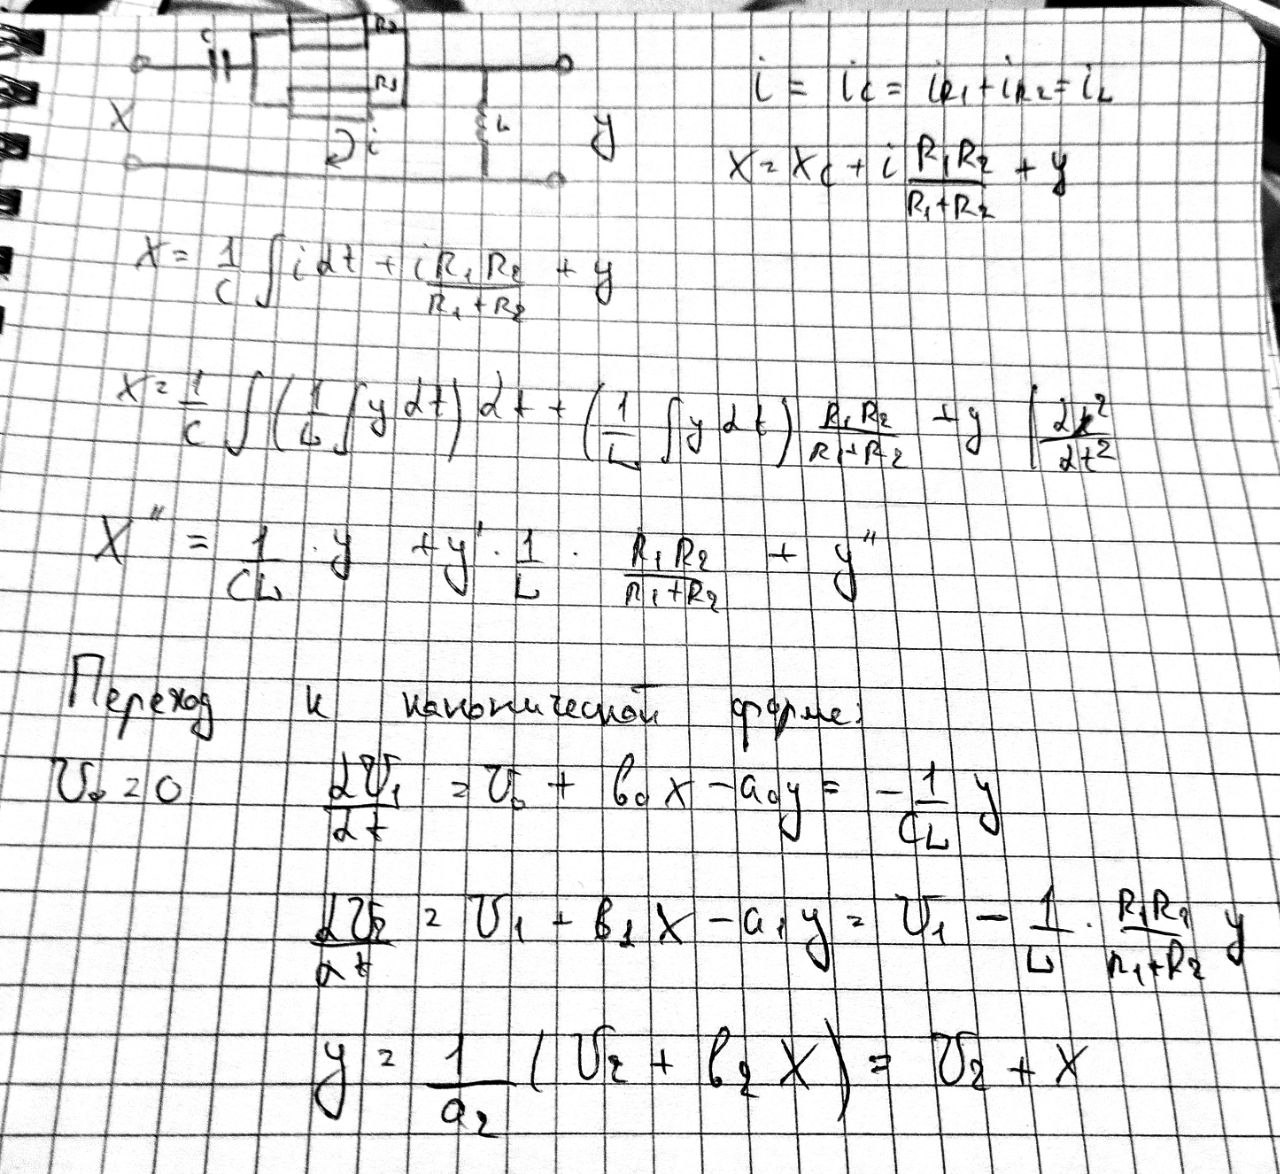 C R2
R1
X i L y
i = iC = iR1 + iR2 = iL
X = XC + i R1R2/(R1+R2) + y
X = 1/C ∫ i dt + i R1R2/(R1+R2) + y
X = 1/C ∫ (1/L ∫ y dt) dt + (1/L ∫ y dt) R1R2/(R1+R2) + y | d²/dt²
X'' = 1/CL · y + y' · 1/L · R1R2/(R1+R2) + y''
Переход к канонической форме:
V0 = 0 dV1/dt = V0 + b0 X - a0 y = - 1/CL y
dV2/dt = V1 + b1 X - a1 y = V1 - 1/L · R1R2/(R1+R2) y
y = 1/a2 (V2 + b2 X) = V2 + X